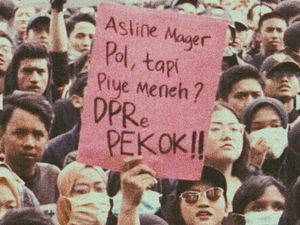 Asline Mager
Pol, tapi
Piye Meneh?
DPRe
PEKOK!!